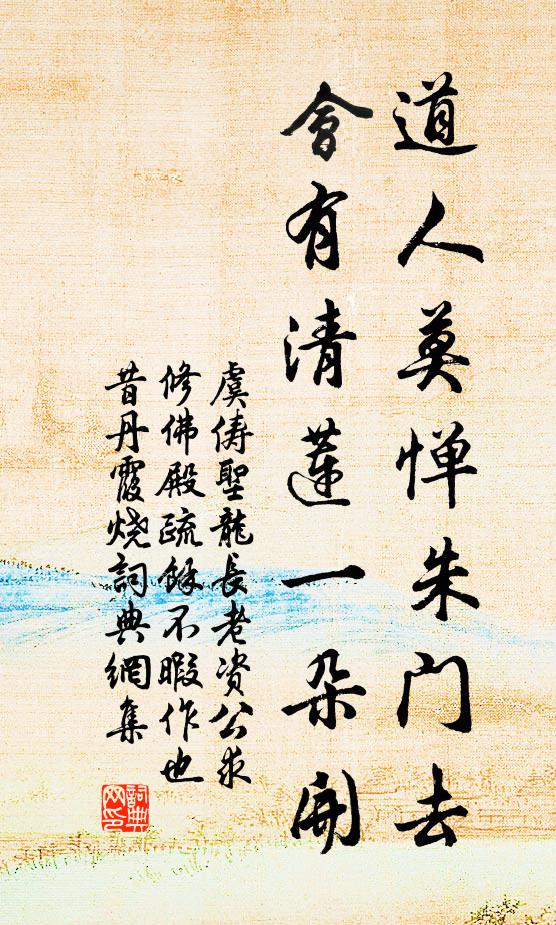 道人莫惮朱门去
会有清莲一朵开
虞俦聖龍長老资公求
修佛殿疏餘不暇作也
昔丹霞烧詞典網集
詞典
网印